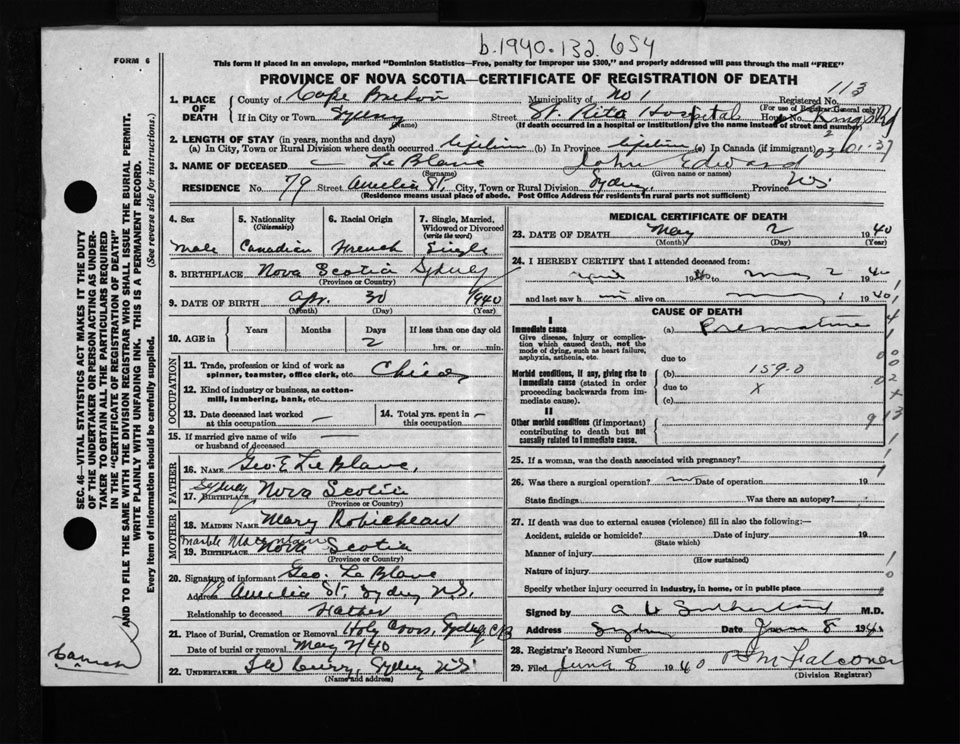 b.1940.132.654
FORM 6
This form if placed in an envelope, marked "Dominion Statistics—Free, penalty for improper use $300," and properly addressed will pass through the mail "FREE"
PROVINCE OF NOVA SCOTIA—CERTIFICATE OF REGISTRATION OF DEATH
113
1. PLACE OF DEATH County of Cape Breton Municipality of No 1 Registered No.
(For use of Registrar General only)
If in City or Town Sydney Street St. Rita Hospital
(Name) (If death occurred in a hospital or institution, give the name instead of street and number)
2. LENGTH OF STAY (in years, months and days)
(a) In City, Town or Rural Division where death occurred lifetime (b) In Province lifetime (c) In Canada (if immigrant) 03 01-37
3. NAME OF DECEASED Le Blanc John Edward
(Surname) (Given name or names)
RESIDENCE No. 79 Street Amelia St. City, Town or Rural Division Sydney, Province NS
(Residence means usual place of abode. Post Office Address for residents in rural parts not sufficient)
4. Sex 5. Nationality (Citizenship) 6. Racial Origin 7. Single, Married, Widowed or Divorced (write the word)
Male Canadian French Single
8. BIRTHPLACE Nova Scotia Sydney
(Province or Country)
9. DATE OF BIRTH Apr. 30 1940
(Month) (Day) (Year)
10. AGE in Years Months Days If less than one day old
2 hrs. or min.
OCCUPATION
11. Trade, profession or kind of work as spinner, teamster, office clerk, etc. Child
12. Kind of industry or business, as cotton-mill, lumbering, bank, etc.
13. Date deceased last worked at this occupation — 14. Total yrs. spent in this occupation —
15. If married give name of wife or husband of deceased —
FATHER
16. NAME Geo. E Le Blanc,
17. BIRTHPLACE Sydney Nova Scotia
(Province or Country)
MOTHER
18. MAIDEN NAME Mary Robicheau
19. BIRTHPLACE Marble Mountain Nova Scotia
(Province or Country)
20. Signature of informant Geo. Le Blanc
Address 79 Amelia St. Sydney N.S.
Relationship to deceased Father
21. Place of Burial, Cremation or Removal Holy Cross, Sydney CB
22. Date of burial or removal May 2/40
22. UNDERTAKER Curry, Sydney NS
(Name and address)
MEDICAL CERTIFICATE OF DEATH
23. DATE OF DEATH May 2 1940
(Month) (Day) (Year)
24. I HEREBY CERTIFY that I attended deceased from:
April 1940 to May 2 1940
and last saw him alive on May 1 1940
CAUSE OF DEATH
I
Immediate cause (a) Premature
Give disease, injury or complication which caused death, not the mode of dying, such as heart failure, asphyxia, asthenia, etc.
due to
Morbid conditions, if any, giving rise to immediate cause (stated in order proceeding backwards from immediate cause).
(b) 159.0
due to X
(c)
II
Other morbid conditions (if important) contributing to death but not causally related to immediate cause.
25. If a woman, was the death associated with pregnancy?
26. Was there a surgical operation? Date of operation 19
State findings Was there an autopsy?
27. If death was due to external causes (violence) fill in also the following:—
Accident, suicide or homicide? Date of injury 19
(State which)
Manner of injury
(How sustained)
Nature of injury
Specify whether injury occurred in industry, in home, or in public place
Signed by A Sutherland M.D.
Address Sydney Date June 8 1940
28. Registrar's Record Number
29. Filed June 8 1940 Falconer
(Division Registrar)
SEC. 46—VITAL STATISTICS ACT MAKES IT THE DUTY
OF THE UNDERTAKER OR PERSON ACTING AS UNDER-
TAKER TO OBTAIN ALL THE PARTICULARS REQUIRED
IN THE "CERTIFICATE OF REGISTRATION OF DEATH"
AND TO FILE THE SAME WITH THE DIVISION REGISTRAR WHO SHALL ISSUE THE BURIAL PERMIT.
WRITE PLAINLY WITH UNFADING INK. THIS IS A PERMANENT RECORD.
Every item of information should be carefully supplied. (See reverse side for instructions.)